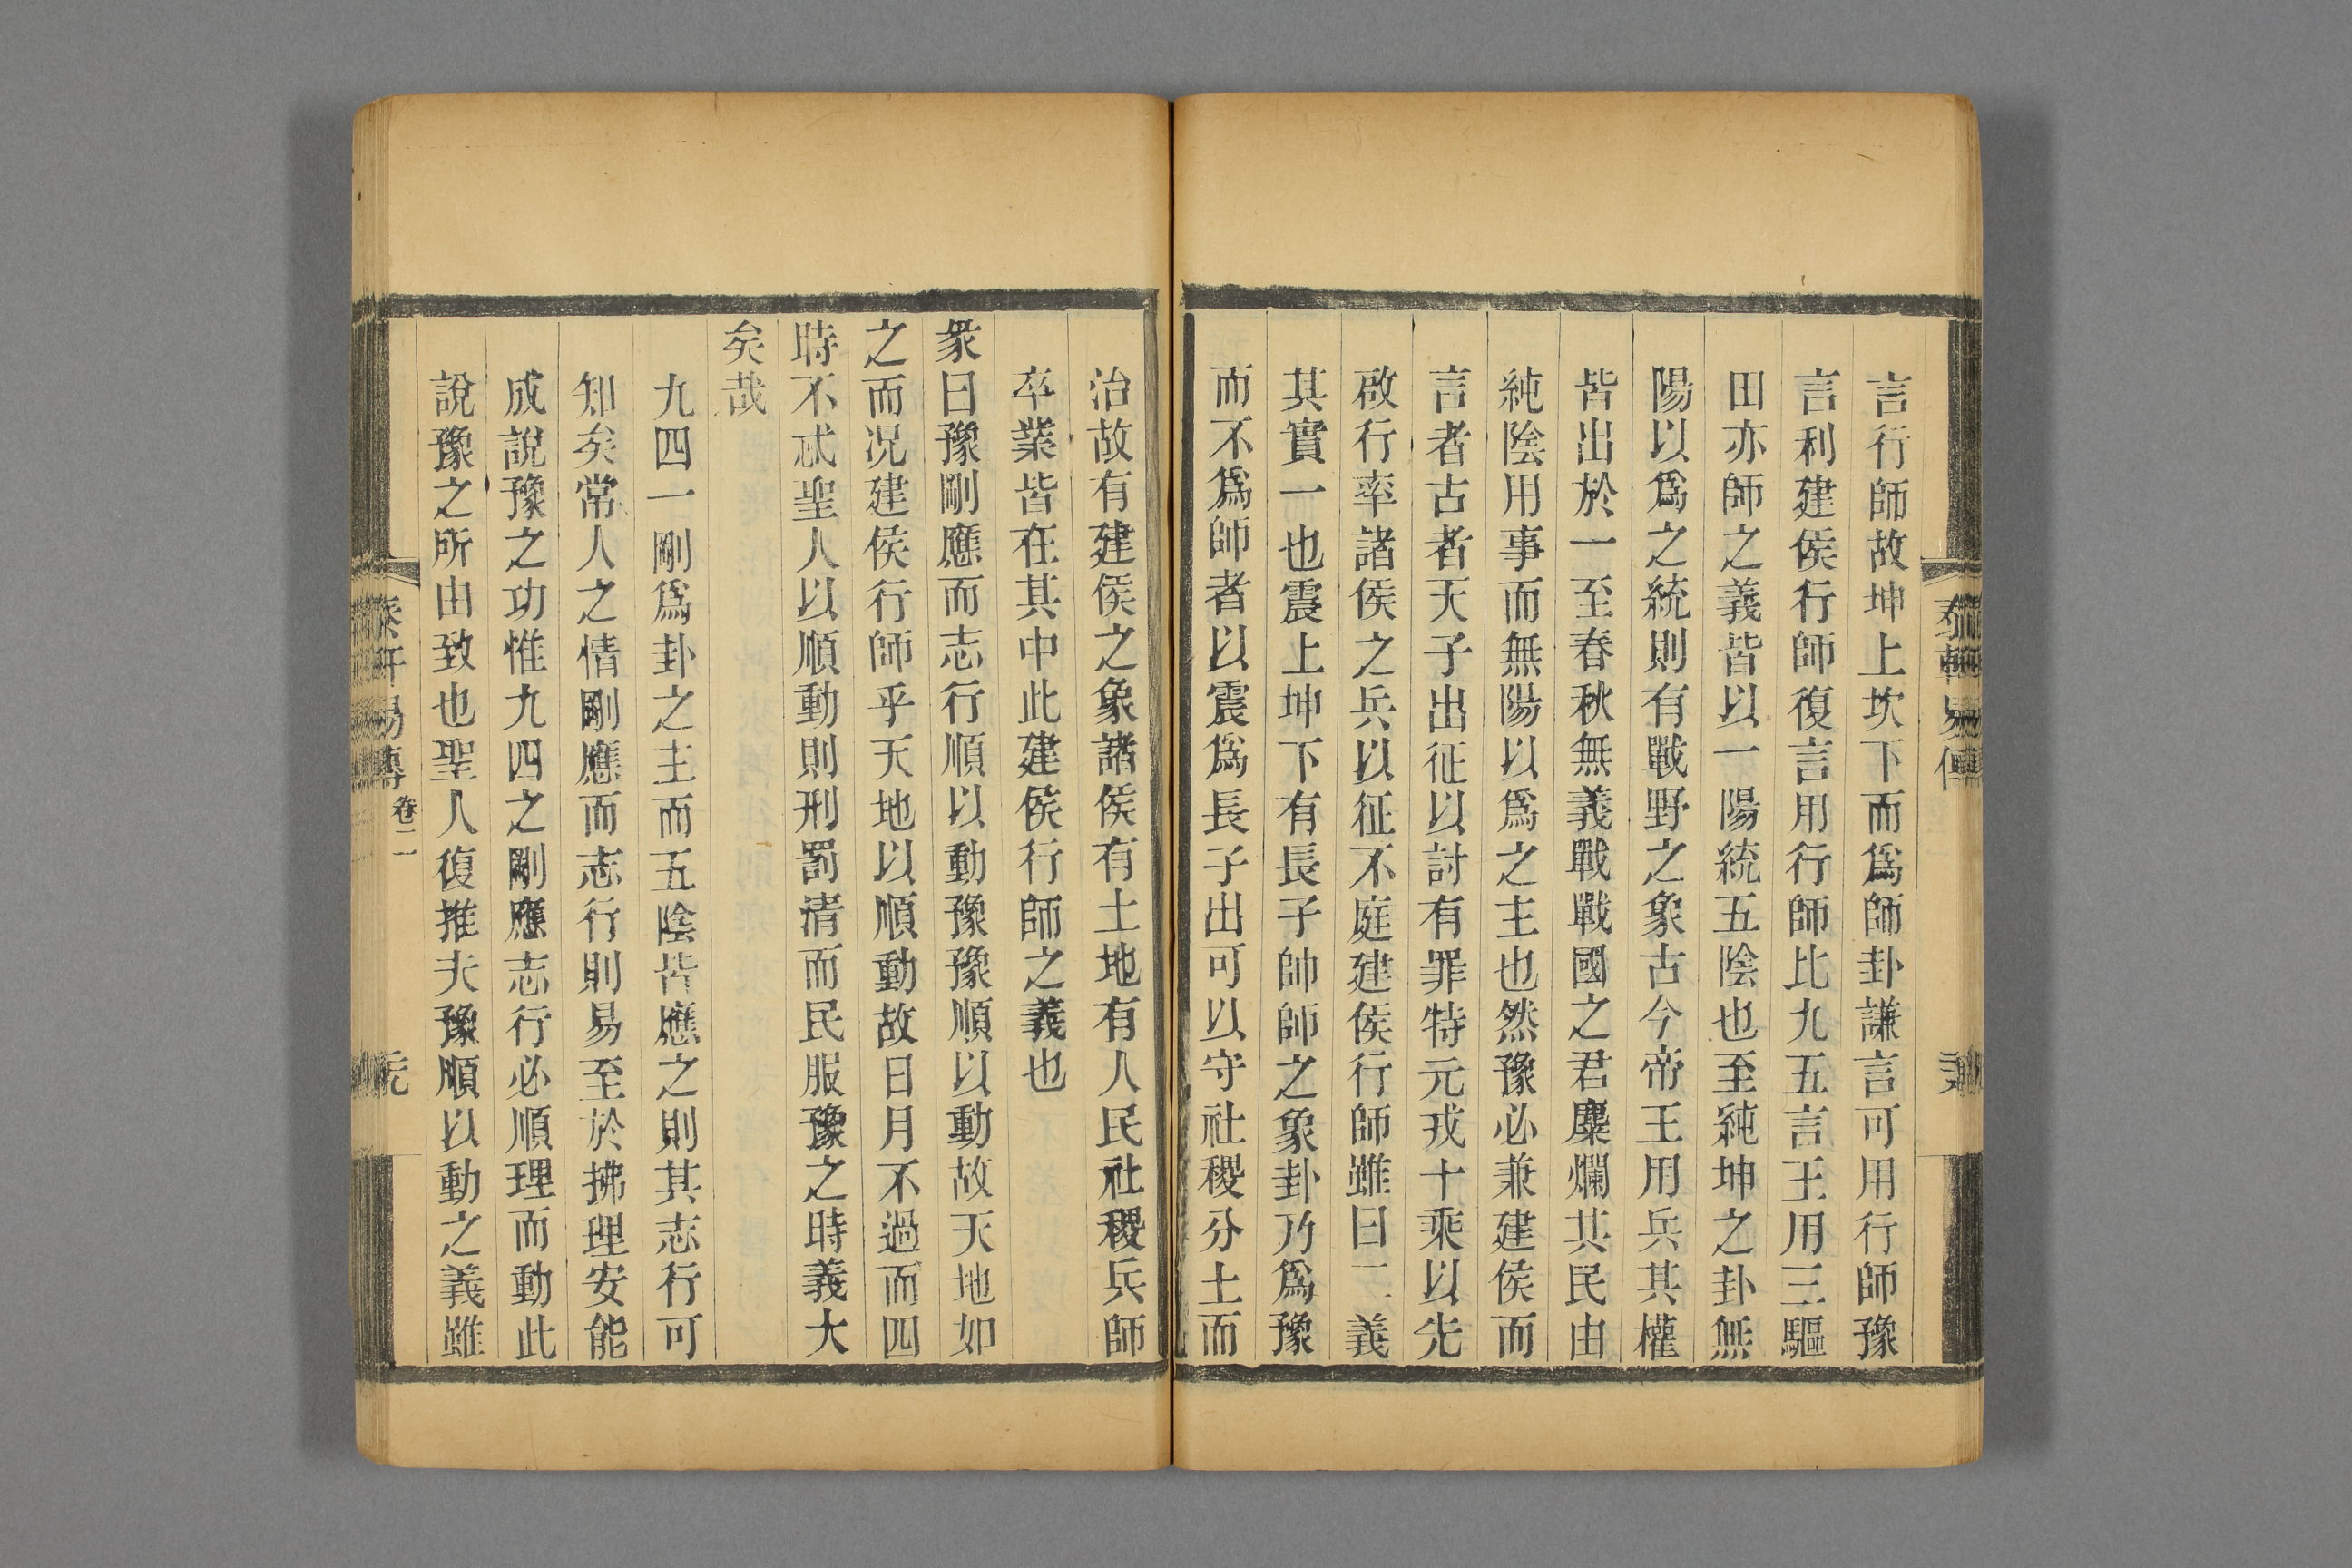 言行師故坤上坎下而爲師卦謙言可用行師豫
言利建侯行師復言用行師比九五言王用三驅
田亦師之義皆以一陽統五陰也至純坤之卦無
陽以爲之統則有戰野之象古今帝王用兵其權
皆出於一至春秋無義戰戰國之君麋爛其民由
純陰用事而無陽以爲之主也然豫必兼建侯而
言者古者天子出征以討有罪特元戎十乘以先
啟行率諸侯之兵以征不庭建侯行師雖曰二義
其實一也震上坤下有長子帥師之象卦乃爲豫
而不爲師者以震爲長子出可以守社稷分土而
治故有建侯之象諸侯有土地有人民社稷兵師
卒業皆在其中此建侯行師之義也
彖曰豫剛應而志行順以動豫豫順以動故天地如
之而況建侯行師乎天地以順動故日月不過而四
時不忒聖人以順動則刑罰清而民服豫之時義大
矣哉
九四一剛爲卦之主而五陰皆應之則其志行可
知矣常人之情剛應而志行則易至於拂理安能
成說豫之功惟九四之剛應志行必順理而動此
說豫之所由致也聖人復推夫豫順以動之義雖
易傳卷二